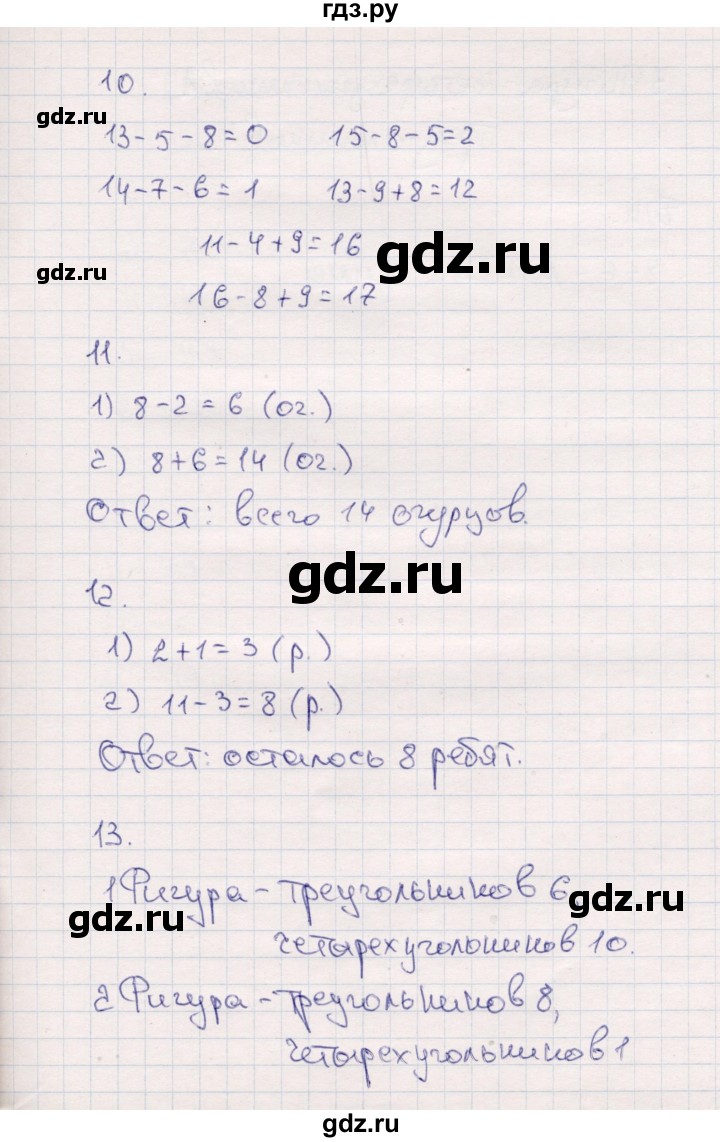 гдз.ру
10.
gdz.ru
13-5-8=0 15-8-5=2
14-7-6=1 13-9+8=12
11-4+9=16
gdz.ru
gdz.ru
16-8+9=17
11.
1) 8-2=6 (ог.)
2) 8+6=14 (ог.)
Ответ: всего 14 огурцов.
gdz.ru
12.
1) 2+1=3 (р.)
2) 11-3=8 (р.)
Ответ: осталось 8 ребят.
13.
1 Фигура - треугольников 6
gdz.ru
gdz.ru
четырехугольников 10.
2 Фигура - треугольников 8,
четырехугольников 1
gdz.ru